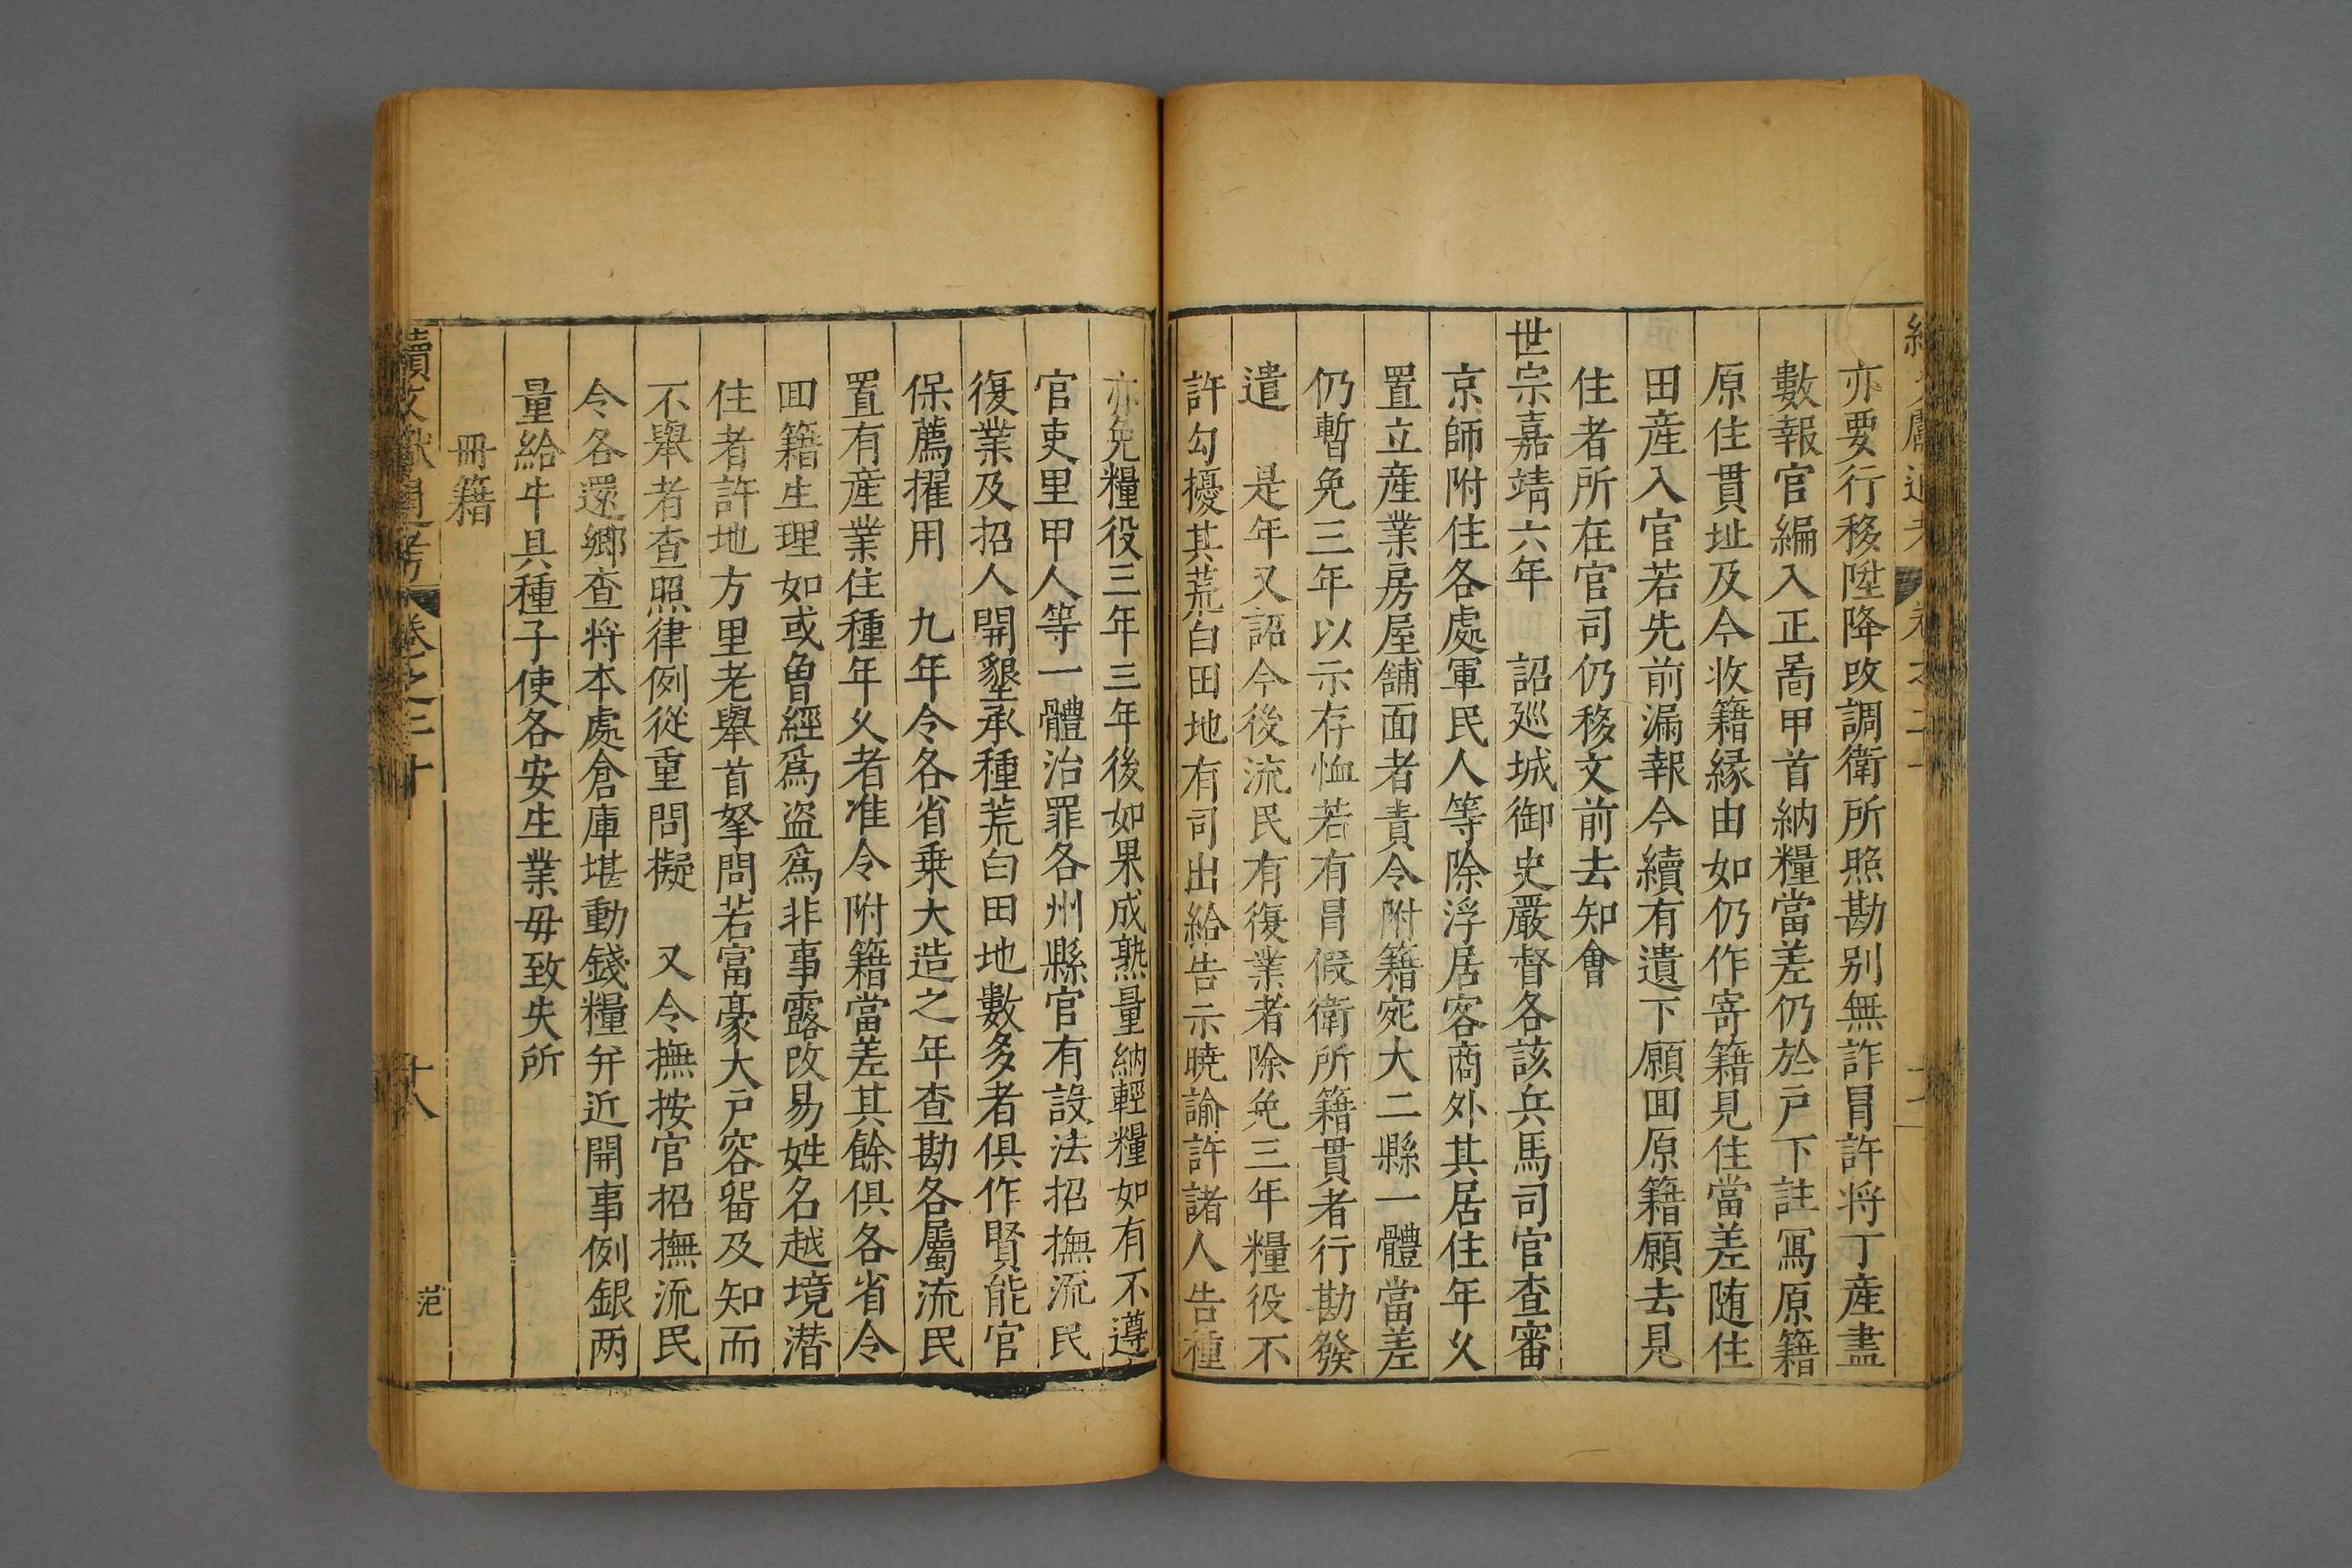 亦要行移陞降改調衛所照勘别無詐冐許将丁産盡
數報官編入正啚甲首納糧當差仍於戸下註寫原籍
原住貫址及今收籍縁由如仍作寄籍見住當差随住
田産入官若先前漏報今續有遺下願囬原籍願去見
住者所在官司仍移文前去知㑹
世宗嘉靖六年 詔廵城御史嚴督各該兵馬司官查審
京師附住各處軍民人等除浮居客商外其居住年乆
置立産業房屋舖面者責令附籍宛大二縣一體當差
仍暫免三年以示存恤若有冐假衛所籍貫者行勘發
遣 是年又詔今後流民有復業者除免三年糧役不
許勾擾其荒白田地有司出給告示曉諭許諸人告種
亦免糧役三年三年後如果成熟量納輕糧如有不遵
官吏里甲人等一體治罪各州縣官有設法招撫流民
復業及招人開墾承種荒白田地數多者俱作賢能官
保薦擢用 九年令各省乗大造之年查勘各屬流民
置有産業住種年乆者准令附籍當差其餘俱各省令
囬籍生理如或曾經爲盗爲非事露改易姓名越境潜
住者許地方里老舉首拏問若富豪大戸容畱及知而
不舉者查照律例從重問擬 又令撫按官招撫流民
令各還鄉查将本處倉庫堪動錢糧并近開事例銀两
量給牛具種子使各安生業毋致失所
冊籍
續文獻通考 卷之二十 十八 范